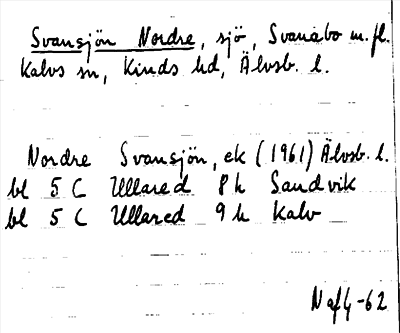 Svansjön Nordre, sjö, Svanabo m.fl.
Kalvs sn, Kinds hd, Älvsb. l.
Nordre Svansjön, ek (1961) Älvsb. l.
bl 5 C Ullared 8 h Sandvik
bl 5 C Ullared 9 h Kalv